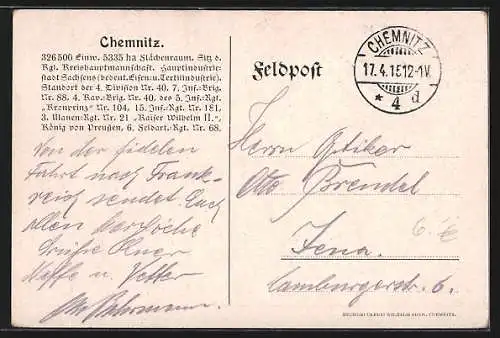 Chemnitz.
326500 Einw. 5335 ha Flächenraum. Sitz d.
Kgl. Kreishauptmannschaft. Hauptindustrie-
stadt Sachsens (bedeut. Eisen- u. Textilindustrie).
Standort der 4. Division Nr. 40. 7. Inf.-Brig.
Nr. 88. 4. Kav.-Brig. Nr. 40. des 5. Inf.-Rgt.
„Kronprinz" Nr. 104, 15. Inf.-Rgt. Nr. 181,
3. Ulanen-Rgt. Nr. 21 „Kaiser Wilhelm II.",
König von Preußen, 6. Feldart.-Rgt. Nr. 68.
Von der fidelen
Fahrt nach Frank-
reich sendet Euch
allen herzliche
Grüße Euer
Neffe u. Vetter
Feldpost
CHEMNITZ
17.4.15.12-1V.
* 4 d
Herrn Optiker
Otto Brendel
Jena.
Camburgerstr. 6.